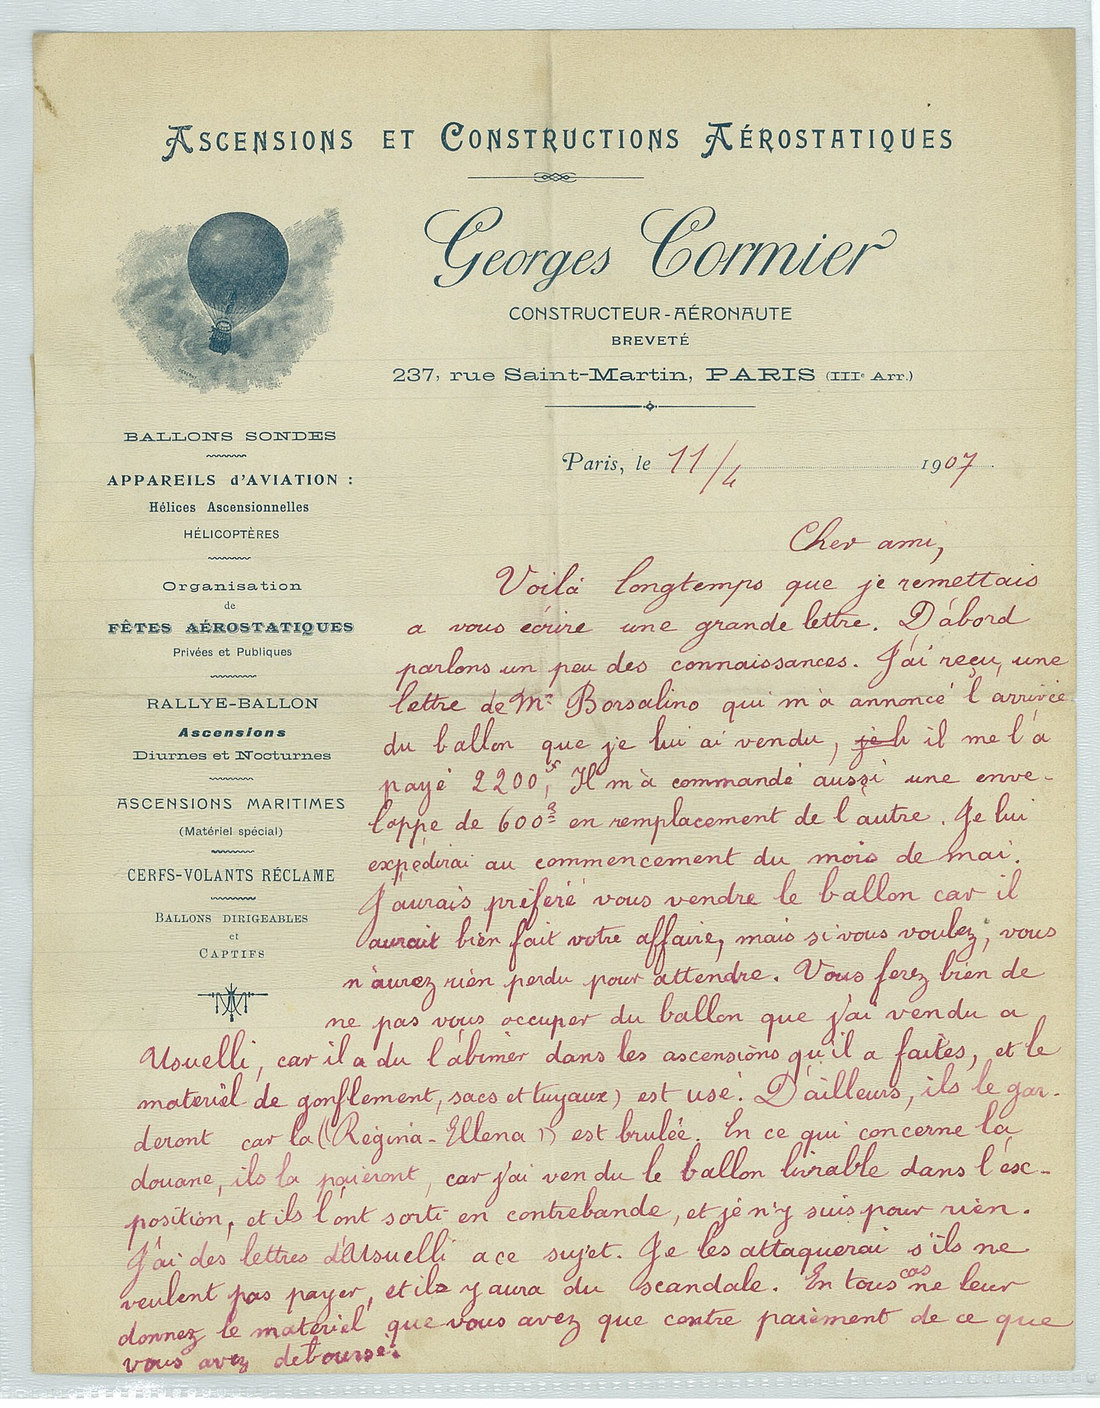 ASCENSIONS ET CONSTRUCTIONS AÉROSTATIQUES
Georges Cormier
CONSTRUCTEUR-AÉRONAUTE
BREVETÉ
237, rue Saint-Martin, PARIS (IIIe Arr.)
BALLONS SONDES
APPAREILS d'AVIATION :
Hélices Ascensionnelles
HÉLICOPTÈRES
Organisation
de
FÊTES AÉROSTATIQUES
Privées et Publiques
RALLYE-BALLON
Ascensions
Diurnes et Nocturnes
ASCENSIONS MARITIMES
(Matériel spécial)
CERFS-VOLANTS RÉCLAME
BALLONS DIRIGEABLES
et
CAPTIFS
Paris, le 11/4 1907
Cher ami,
Voilà longtemps que je remettais
a vous écrire une grande lettre. D'abord
parlons un peu des connaissances. J'ai reçu une
lettre de Mr Borsalino qui m'a annoncé l'arrivée
du ballon que je lui ai vendu, il me l'a
payé 2200fr, Il m'à commandé aussi une enve-
loppe de 600 en remplacement de l'autre. Je lui
expédirai au commencement du mois de mai.
J'aurais préféré vous vendre le ballon car il
aurait bien fait votre affaire, mais si vous voulez, vous
n'aurez rien perdu pour attendre. Vous ferez bien de
ne pas vous occuper du ballon que j'ai vendu a
Usuelli, car il a du l'abimer dans les ascensions qu'il a faites, et le
materiel de gonflement, sacs et tuyaux) est usé. D'ailleurs, ils le gar-
deront car la (Regina-Ellena)) est brulée. En ce qui concerne la
douane, ils la paieront, car j'ai vendu le ballon livrable dans l'ex-
position, et ils l'ont sorti en contrebande, et je n'y suis pour rien.
J'ai des lettres d'Usuelli a ce sujet. Je les attaquerai s'ils ne
veulent pas payer, et il y aura du scandale. En tous cas ne leur
donnez le materiel que vous avez que contre paiement de ce que
vous avez deboursé.